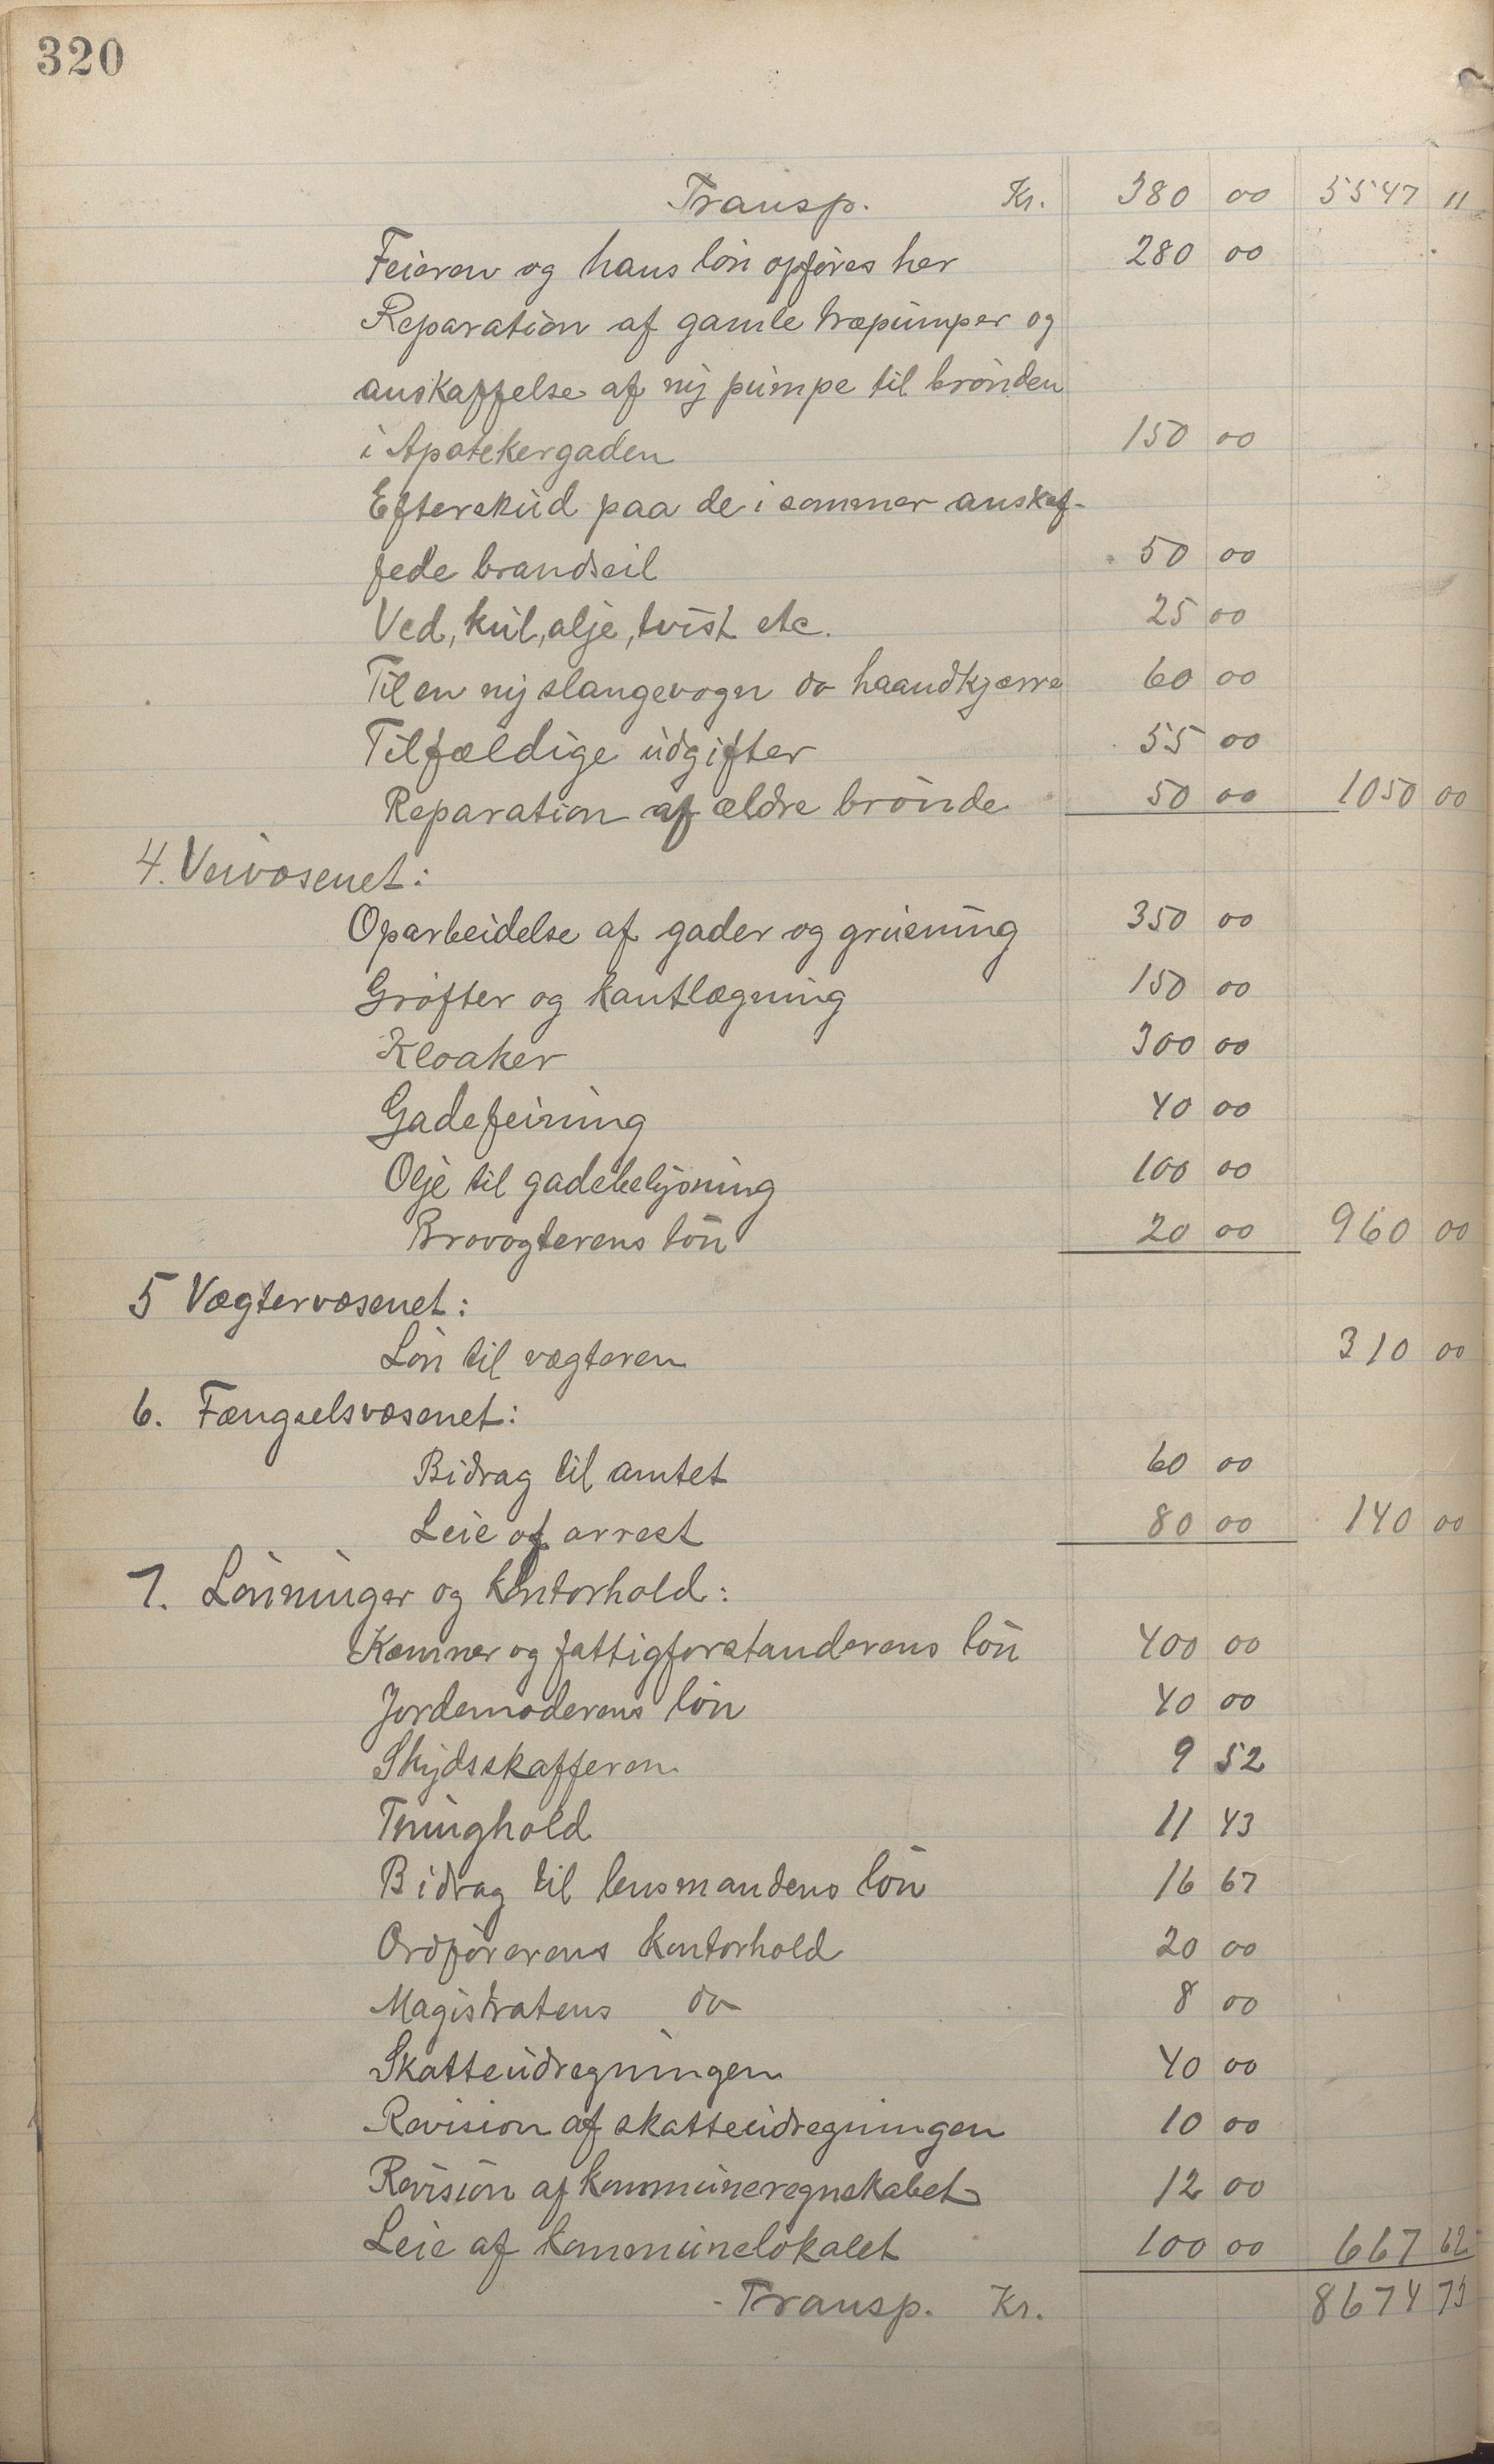 320
Transp. Kr. 380 00 5547 11
Feieren og hans løn opføres her 280 00
Reparation af gamle træpumper og
anskaffelse af ny pumpe til brønden
i Apotekergaden 150 00
Efterskud paa de i sommer anskaf-
fede brandseil 50 00
Ved, kul, olje, tvist etc. 25 00
Til en ny slangevogn do haandkjærre 60 00
Tilfældige udgifter 55 00
Reparation af ældre brønde 50 00 1050 00
4. Veivæsenet:
Oparbeidelse af gader og grusning 350 00
Grøfter og kantlægning 150 00
Kloaker 300 00
Gadefeining 40 00
Olje til gadebelysning 100 00
Brovogterens løn 20 00 960 00
5 Vægtervæsenet:
Løn til vægteren 310 00
6. Fængselsvæsenet:
Bidrag til amtet 60 00
Leie af arrest 80 00 140 00
7. Lønninger og kontorhold:
Kemner og fattigforstanderens løn 400 00
Jordemoderens løn 40 00
Skydsskafferen 9 52
Thinghold 11 43
Bidrag til lensmandens løn 16 67
Ordførerens kontorhold 20 00
Magistratens do 8 00
Skatteudregningen 40 00
Revision af skatteudregningen 10 00
Revision af kommuneregnskabet 12 00
Leie af kommunelokalet 100 00 667 62
Transp. Kr. 8674 73